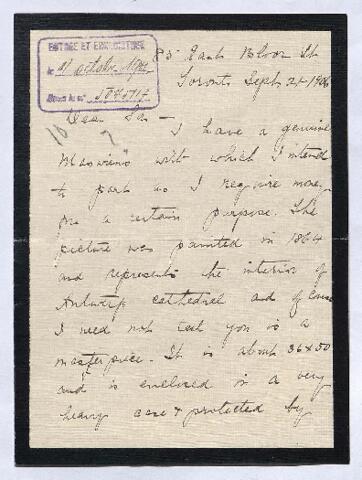 ENTRÉE ET EXPÉDITION
le 21 octobre
85 East Bloor St
Toronto Sept 24 1906
Dear Sir - I have a genuine
10 7
with which I intend
to part as I require money
for a certain purpose. The
picture was painted in 1864
and represents the interior of
Antwerp cathedral and of course
I need not tell you is a
masterpiece. It is about 36x50
and is enclosed in a very
heavy case & protected by